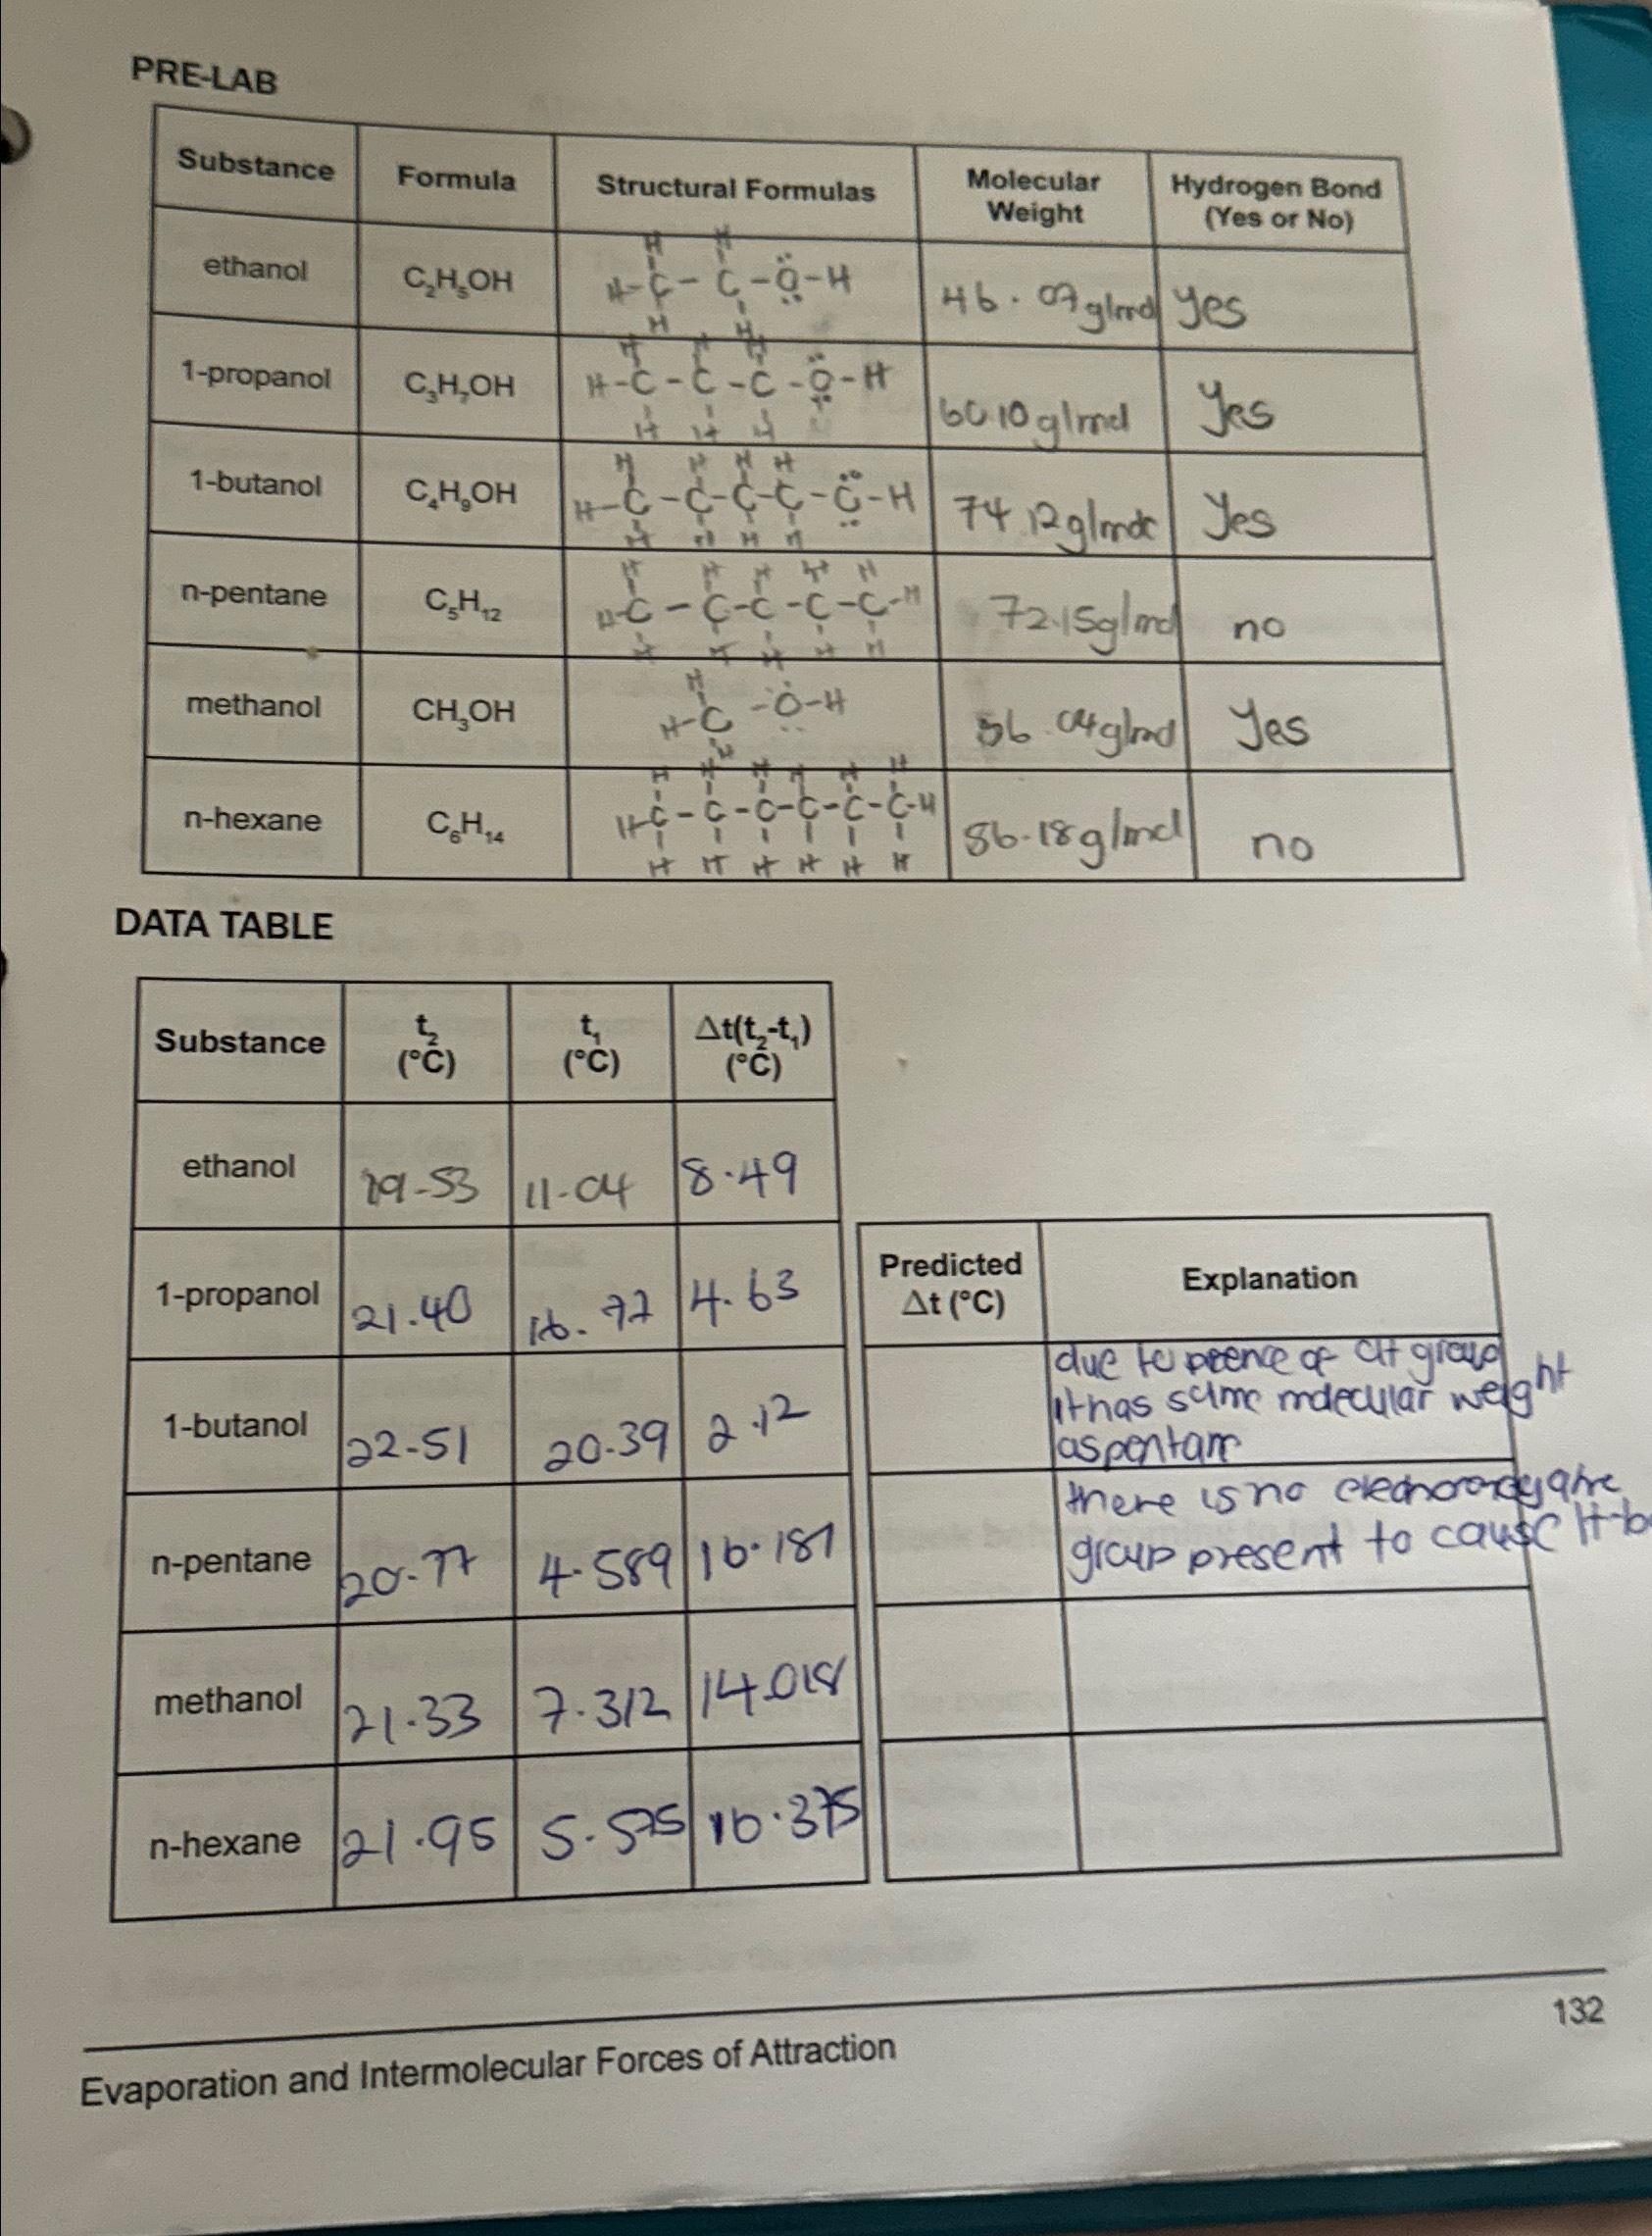 PRE-LAB
Substance Formula Structural Formulas Molecular Weight Hydrogen Bond (Yes or No)
ethanol C₂H₅OH 46.07g/mol yes
H H
H-C-C-Ö-H
H H
1-propanol C₃H₇OH 60.10g/mol Yes
H H H
H-C-C-C-Ö-H
H H H
1-butanol C₄H₉OH 74.12g/mol Yes
H H H H
H-C-C-C-C-Ö-H
H H H H
n-pentane C₅H₁₂ 72.15g/mol no
H H H H H
H-C-C-C-C-C-H
H H H H H
methanol CH₃OH 36.04g/mol Yes
H
H-C-Ö-H
H
n-hexane C₆H₁₄ 86.18g/mol no
H H H H H H
H-C-C-C-C-C-C-H
H H H H H H
DATA TABLE
Substance t₂ (°C) t₁ (°C) Δt(t₂-t₁) (°C)
ethanol 19.53 11.04 8.49
1-propanol 21.40 16.77 4.63
Predicted Δt (°C) Explanation
1-butanol 22.51 20.39 2.12
due to of OH group
it has same molecular weight
as
n-pentane 20.77 4.589 16.181
there is no
group present to cause H-b
methanol 21.33 7.312 14.018
n-hexane 21.95 5.575 16.375
132
Evaporation and Intermolecular Forces of Attraction